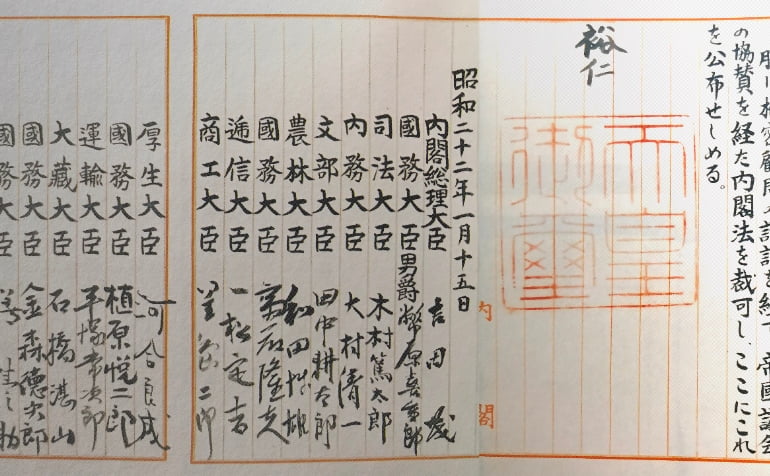 朕は樞密顧問の諮詢を経て、帝國議会
の協賛を経た内閣法を裁可し、ここにこれ
を公布せしめる。
裕仁
天皇
御璽
内閣
昭和二十二年一月十五日
内閣総理大臣 吉田茂
國務大臣男爵幣原喜重郎
司法大臣 木村篤太郎
内務大臣 大村清一
文部大臣 田中耕太郎
農林大臣 和田博雄
國務大臣 斎藤隆夫
遞信大臣 一松定吉
商工大臣 星島二郎
厚生大臣 河合良成
國務大臣 植原悦二郎
運輸大臣 平塚常次郎
大藏大臣 石橋湛山
國務大臣 金森德次郎
國務大臣 膳桂之助